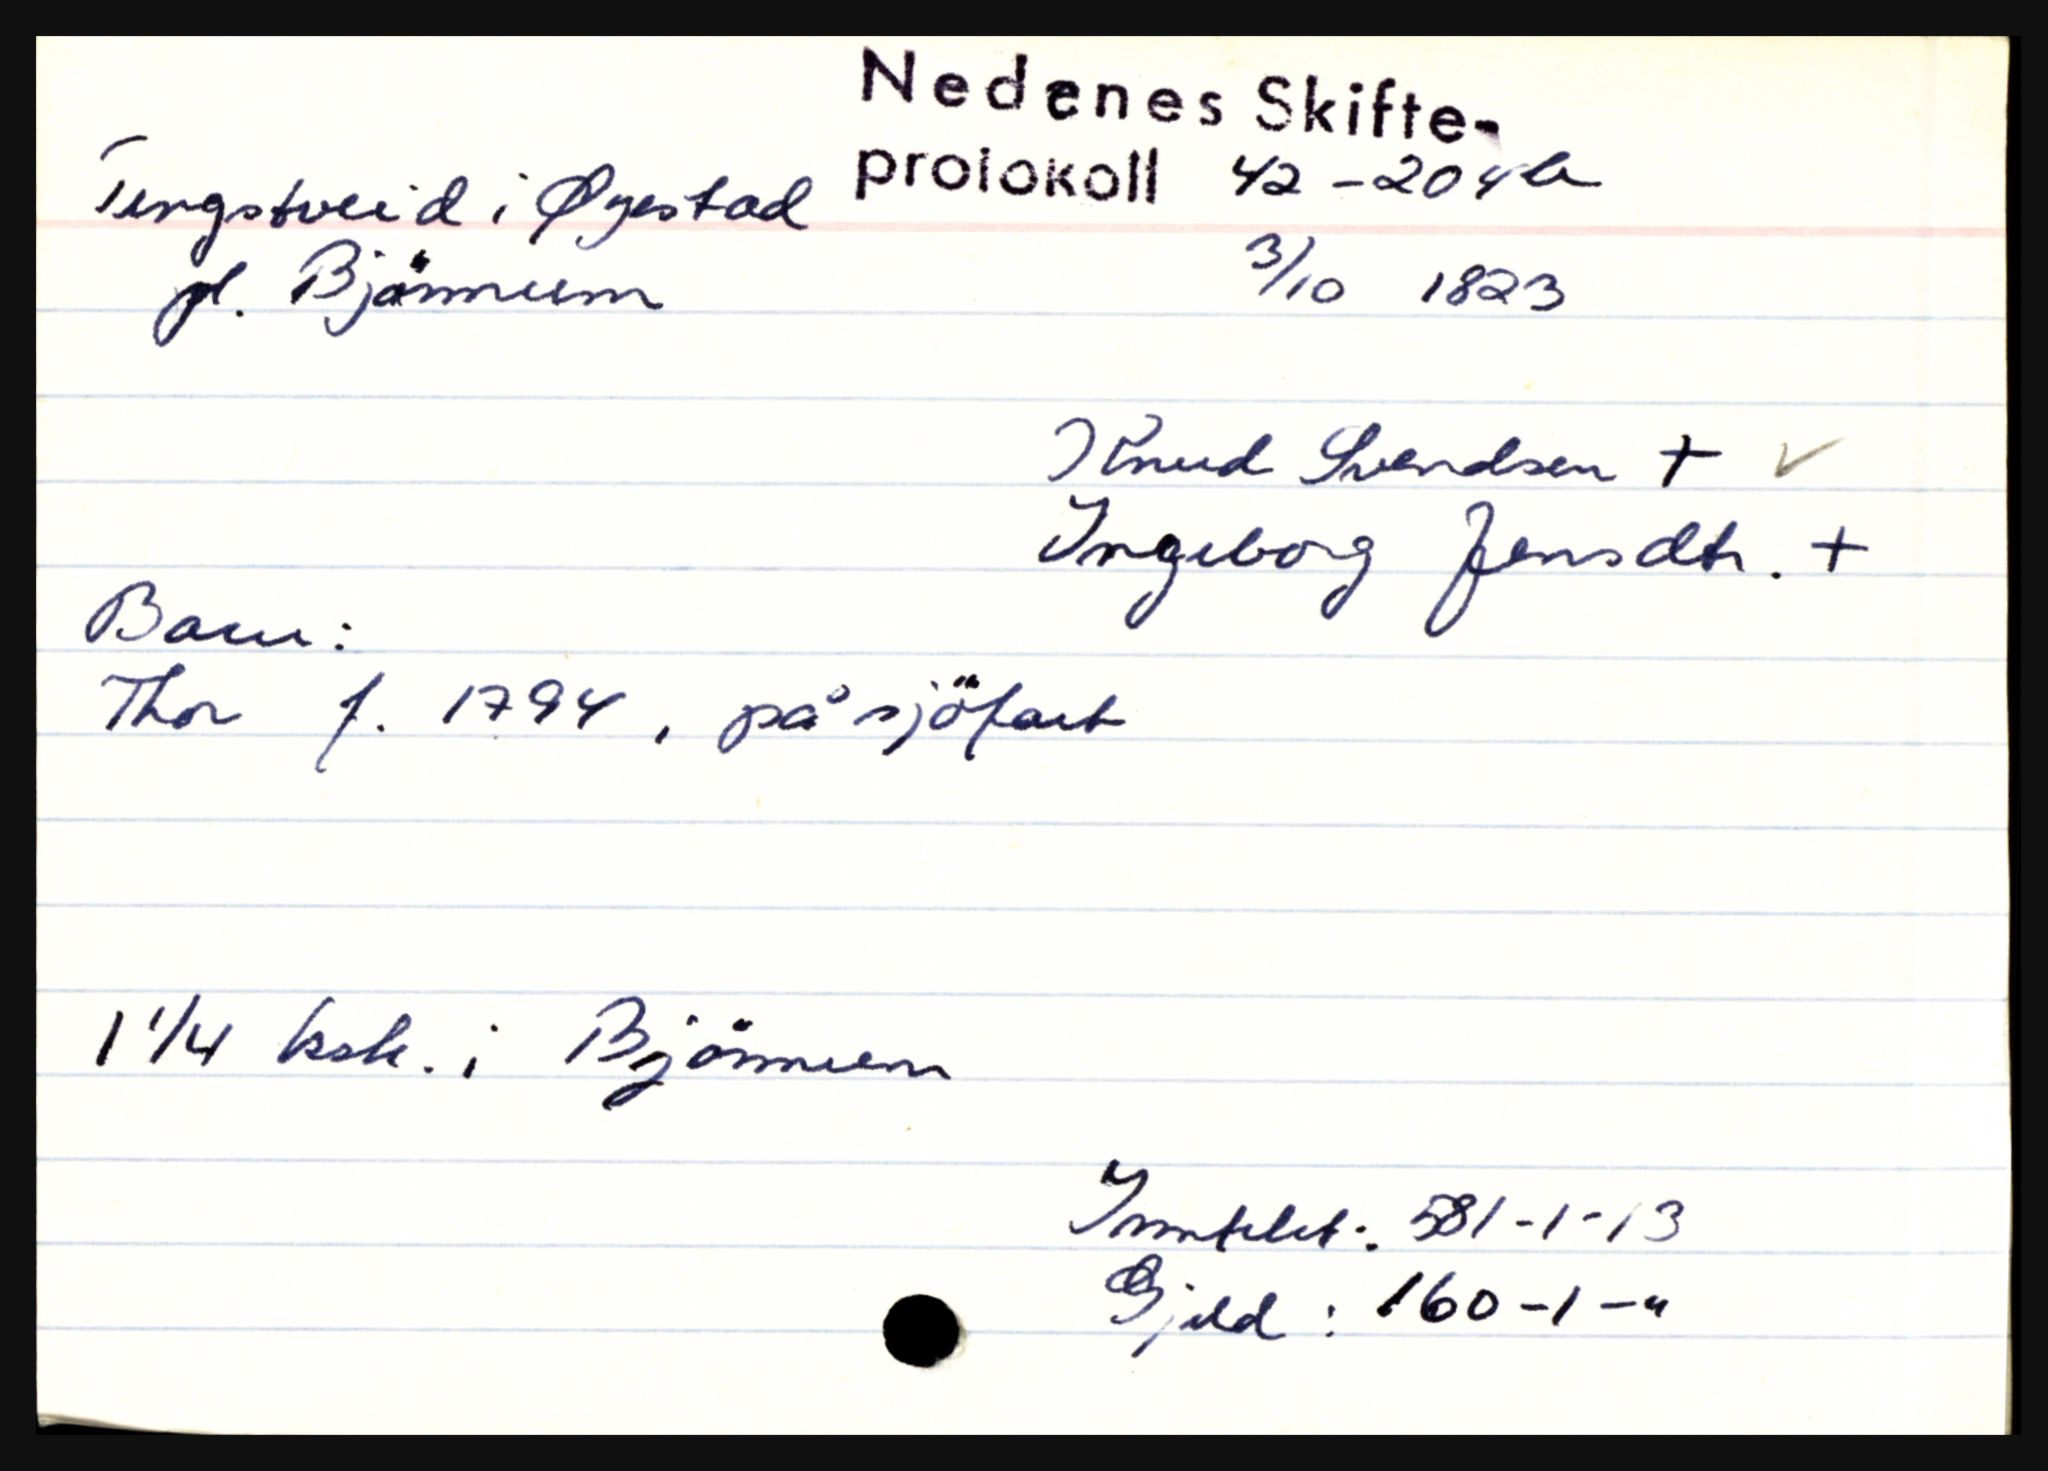 Nedenes Skifte-
protokoll 42-204b
Tingstveid i Øyestad
pl. Bjönnum
3/10 1823
Knud Svendsen + ✓
Ingeborg Jensdtr. +
Barn:
Thor f. 1794, på sjöfart
1 1/4 ksk. i Bjönnum
Inntekt: 581-1-13
Gjeld: 160-1-"